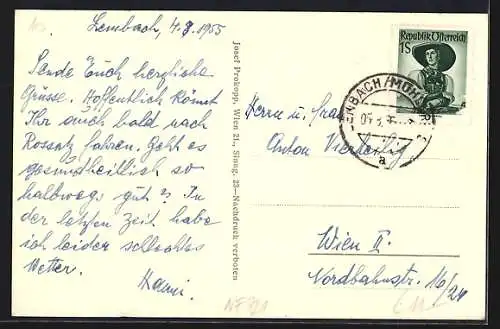 Lembach, 4.8.1955
Sende Euch herzliche
Grüsse. Hoffentlich könnt
Ihr auch bald nach
Rossatz fahren. Geht es
gesundheitlich so
halbwegs gut? In
der letzten Zeit habe
ich leider schlechtes
Wetter.
Hanni.
Josef Prokopp, Wien 21., Sinag. 23—Nachdruck verboten
Republik Österreich
1S
LEMBACH/MÜHLKR.
a
Herrn u. frau
Anton Vierteilig
Wien II.
Nordbahnstr. 16/24